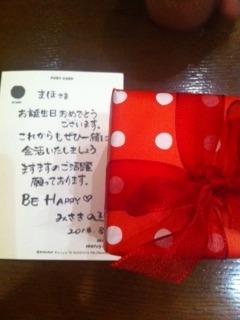 POST CARD
まほさま
お誕生日おめでとう
ございます。
これからもぜひ一緒に
会活いたしましょう
ますますのご活躍
願っております。
BE HAPPY♡
みさき